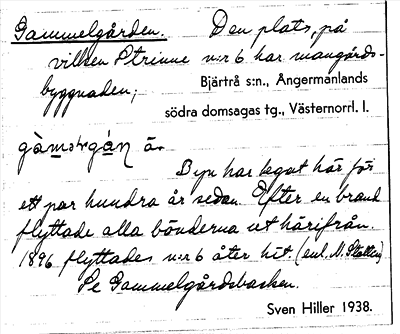 Gammelgården. Den plats, på
vilken Strinne n:r 6 har mangårds-
byggnaden;
Bjärtrå s:n., Ångermanlands
södra domsagas tg., Västernorrl. l.
Byn har legat här för
ett par hundra år sedan. Efter en brand
flyttade alla bönderna ut härifrån.
1896 flyttades n:r 6 åter hit. (enl. M.
Se Gammelgårdsbacken.
Sven Hiller 1938.